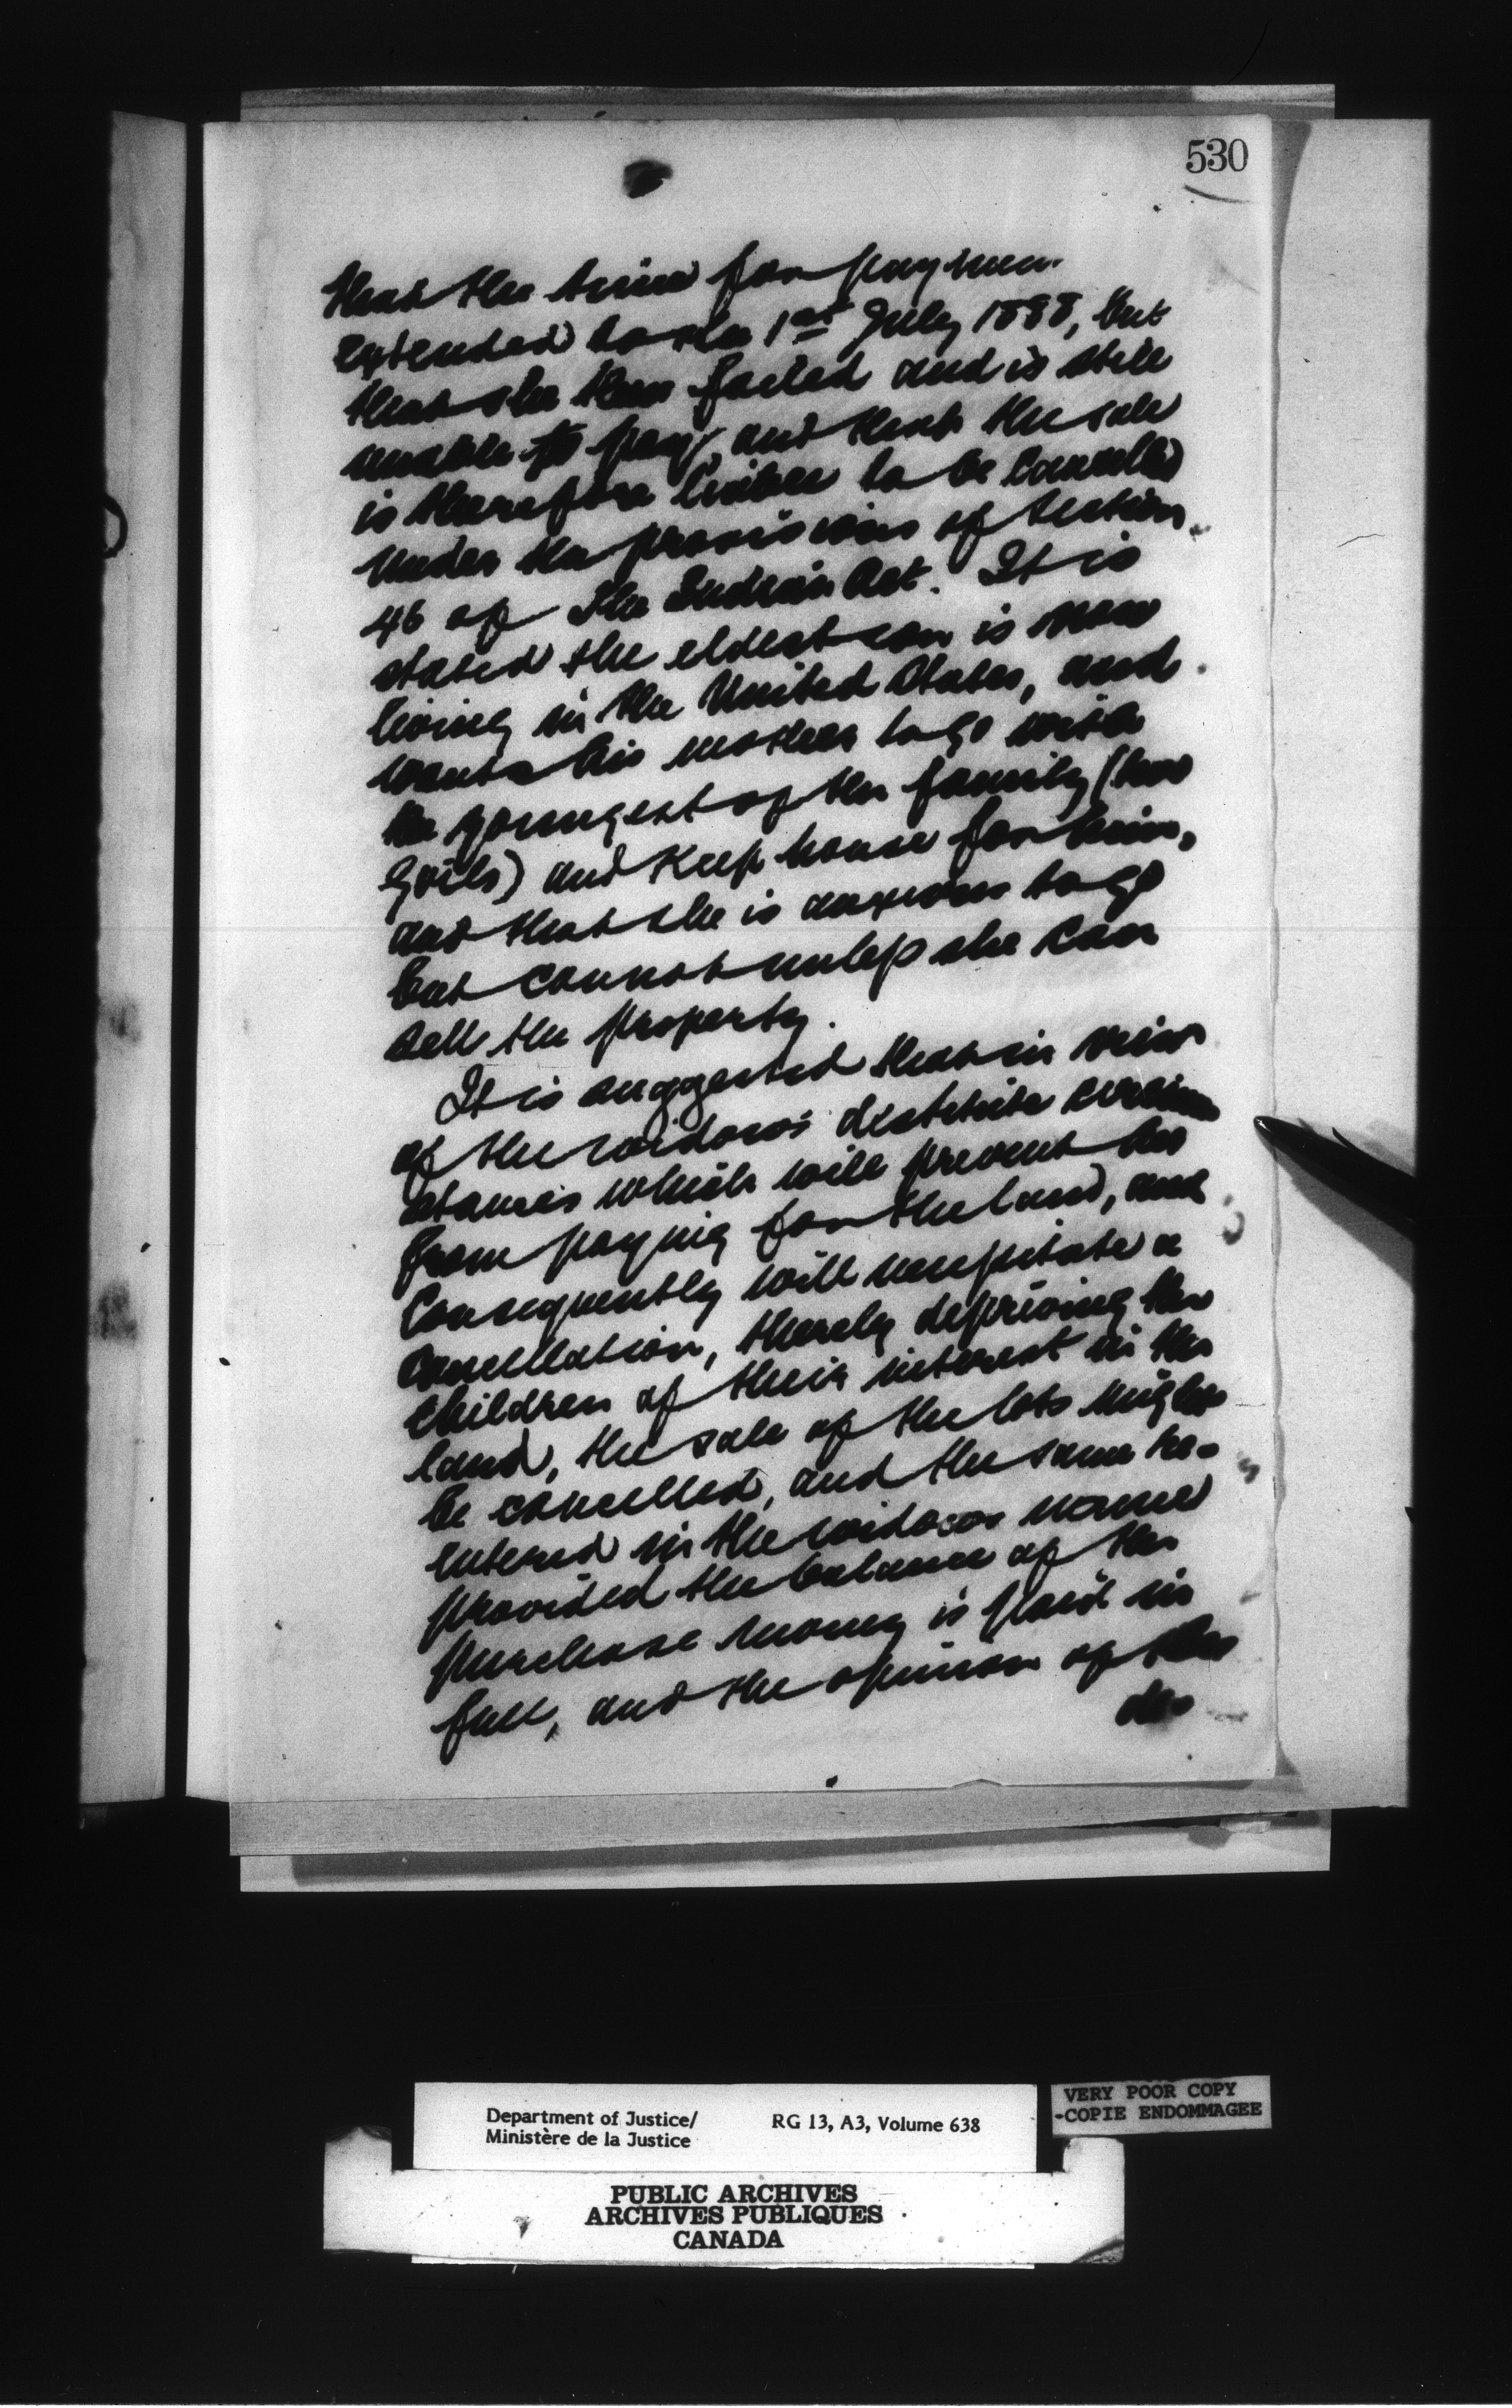 530
that the time for paymen
extended to the 1st July 1888, but
that she then failed and is still
unable to pay, and that the sale
is therefore liable to be cancelled
under the provisions of Section
46 of The Indian Act. It is
stated the eldest son is now
living in the United States, and
wants his mother to go with
the youngest of the family (two
girls) and keep house for him,
and that she is anxious to go
but cannot unless she can
sell the property.
It is suggested that in view
of the widow's destitute circum
stances which will prevent her
from paying for the land, and
consequently will necessitate a
cancellation, thereby depriving the
children of their interest in the
land, the sale of the lots might
be cancelled, and the same re-
entered in the widows name
provided the balance of the
purchase money is paid in
full, and the opinion of the
de
Department of Justice/
Ministère de la Justice
RG 13, A3, Volume 638
VERY POOR COPY
-COPIE ENDOMMAGEE
PUBLIC ARCHIVES
ARCHIVES PUBLIQUES
CANADA